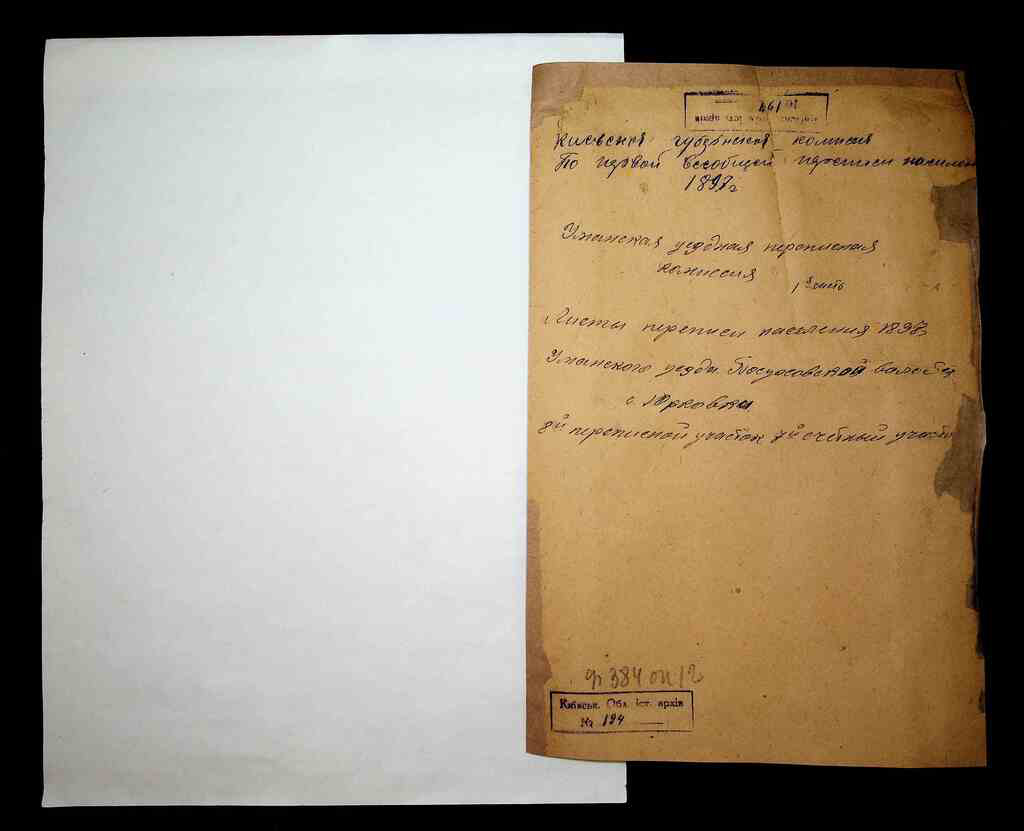 Київськ. Обл. іст. архів
Киевская губернская комисия
По первой всеобщей переписи населен
1897г
Уманская уездная переписная
комиссия
1я часть
Листы переписи населения 1897
Уманского уезда волости
с Юрковка
8й переписной участок 7й счетный участо
ф 384 оп 12
Київськ. Обл. іст. архів
№ 194